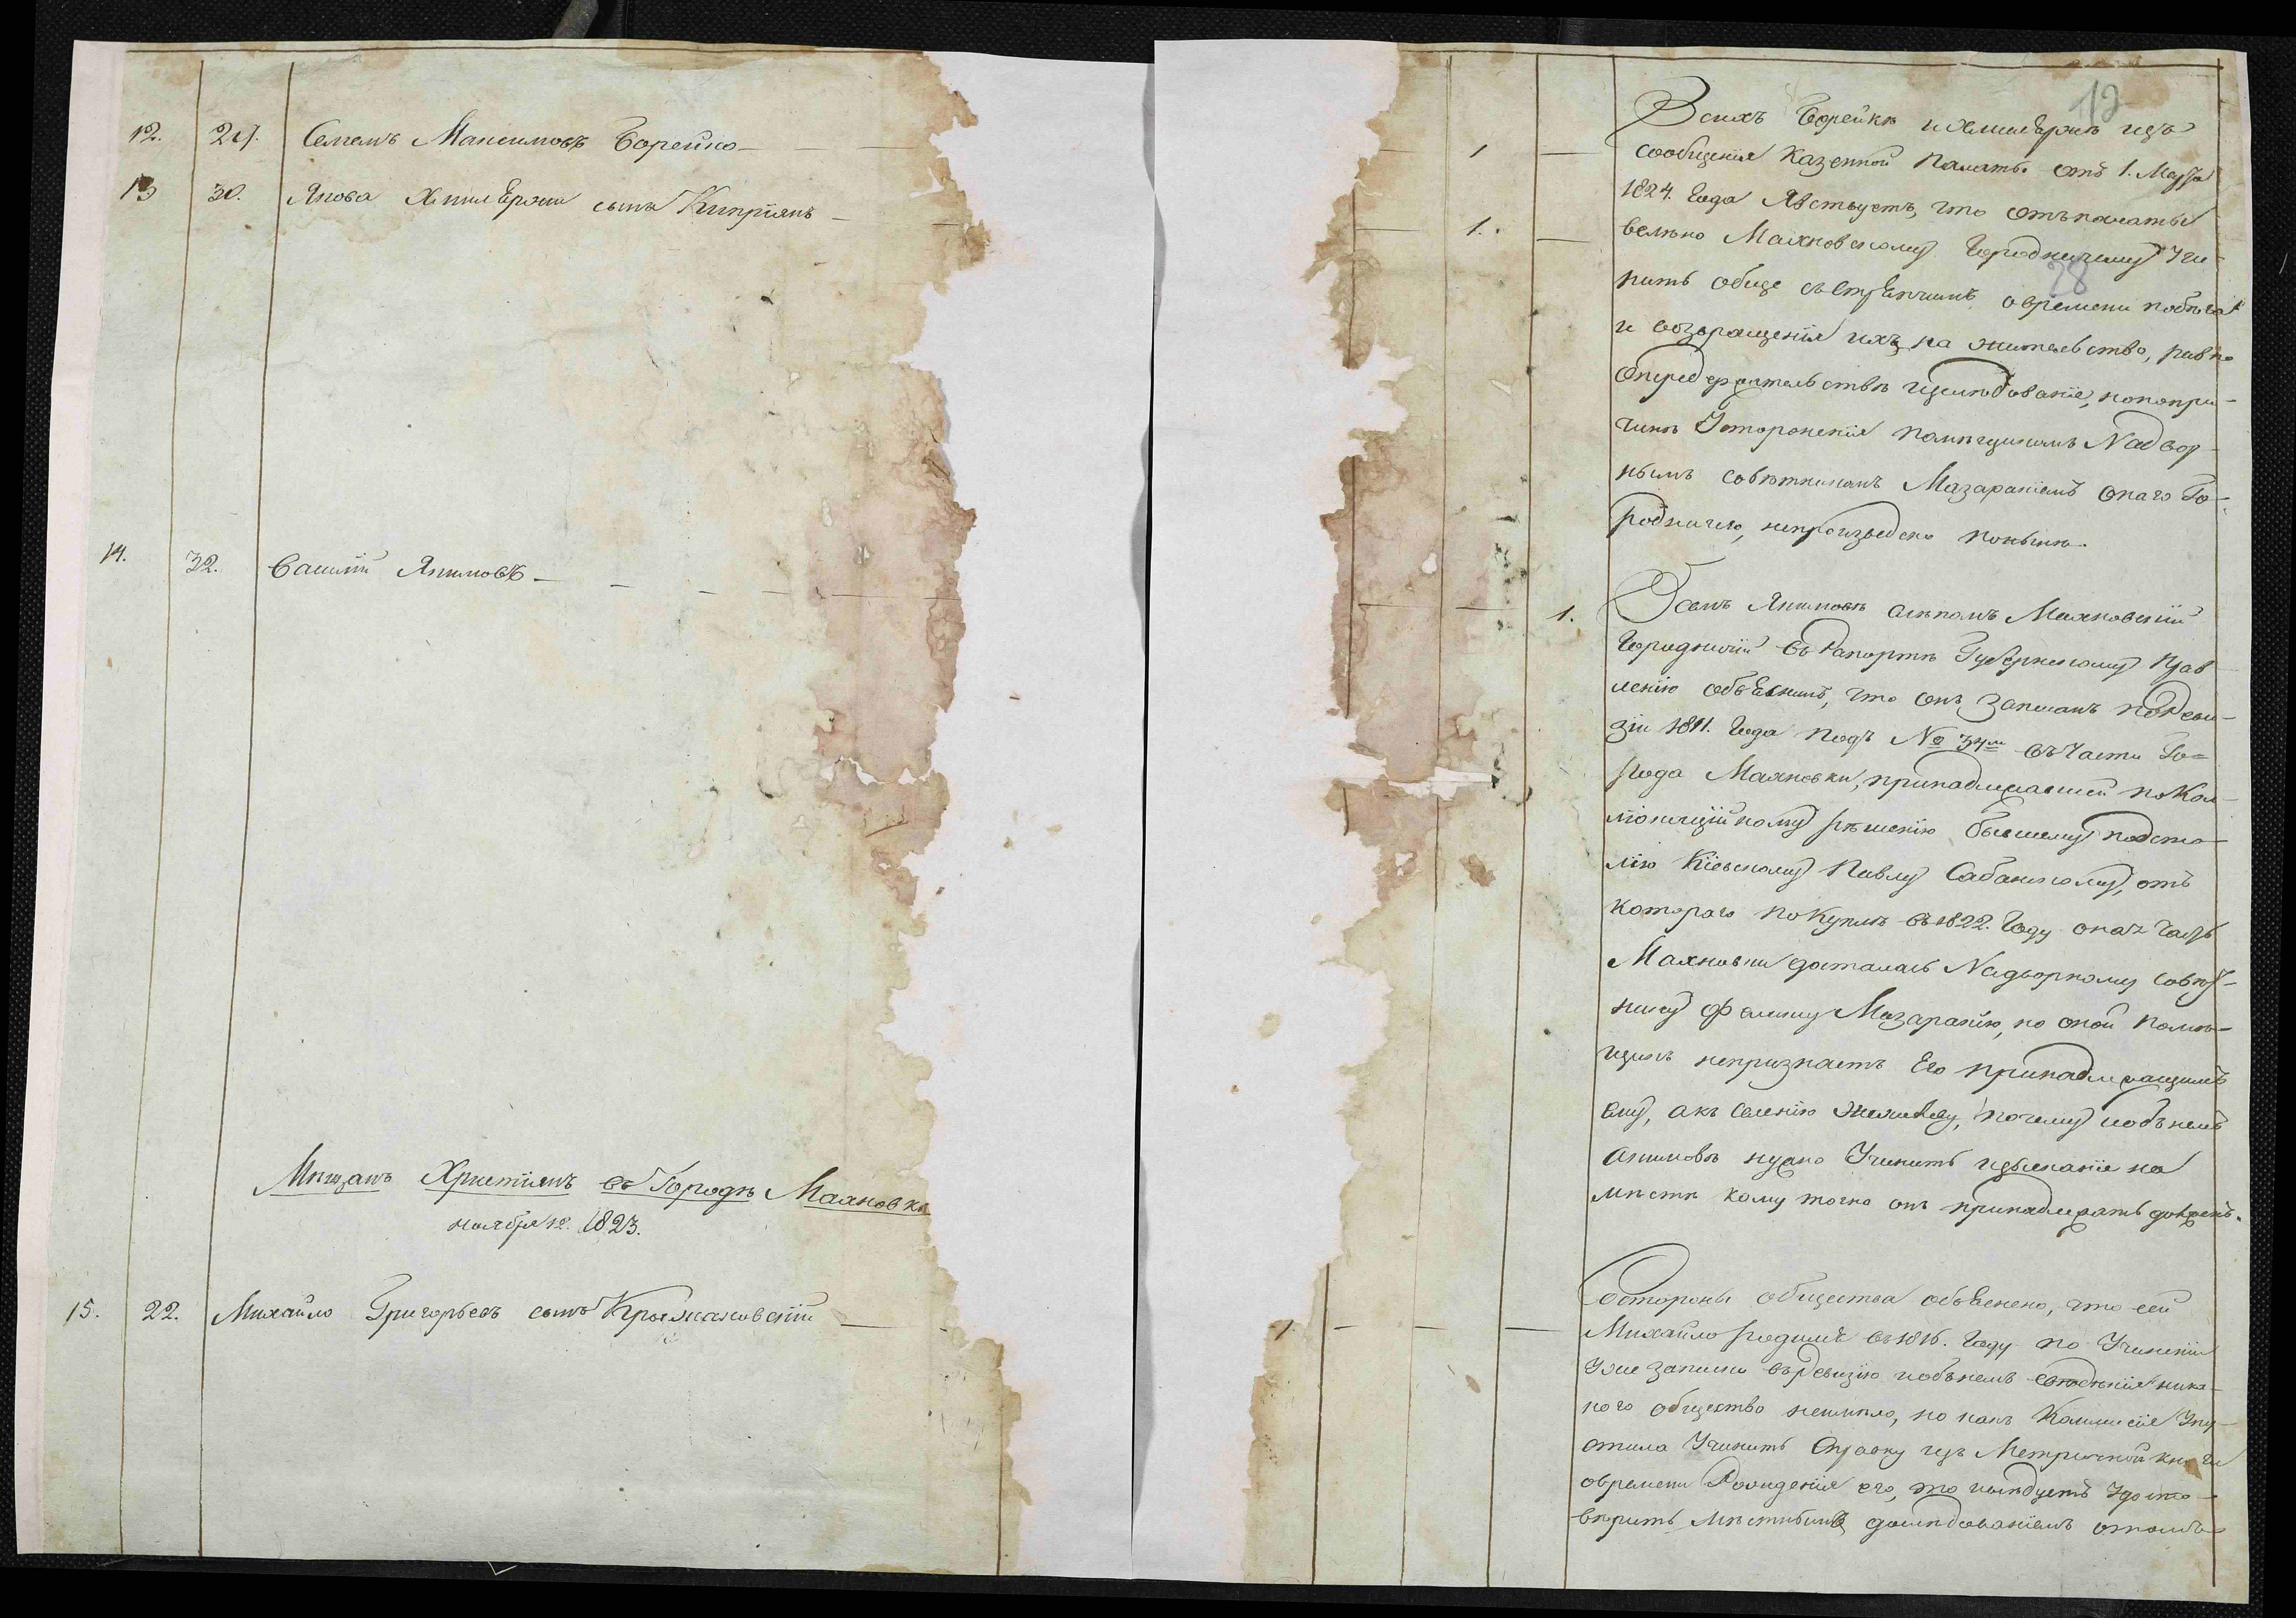 12. 29. Семенъ Максимовъ Борейко
13 30. Якова Хмилѣвскаго сынъ Кипріянъ
14. 32. Василій Якимовъ
Мѣщанъ Христіянъ въ Городѣ Махновкѣ
ноября 12. 1823.
15. 22. Михайло Григорьевъ сынъ Крыжановскій
12
28
1
1.
1.
1.
О сихъ Борейкѣ и изъ
сообщенія Казенной Палаты отъ 1. Марта
1824. Года Явствуетъ, что отъ палаты
велѣно Махновскому Городничему Учи-
нить обще съ стряпчимъ о времени побѣга
и возвращенія ихъ на жительство, равно
о передержательствѣ изслѣдованіе, но по при-
чинѣ Устороненія помѣщикомъ Надвор-
нымъ совѣтникомъ Мазаракіемъ онаго Го-
родничего, непроизведено понынѣ.
О семъ Якимовѣ Махновскій
Городничій въ Рапортѣ Губернскому Прав-
ленію объяснилъ, что онъ записанъ по Реви-
зіи 1811. Года подъ № 34м въ Части Го-
рода Махновки, принадлежавшей по
рѣшенію бывшему подсто-
лію Кіевскому Павлу Сабанскому, отъ
котораго по Куплѣ въ 1822. Году оная Часть
Махновки досталась Надворному Совѣт-
нику Феликсу Мазаракію, но оной помѣ-
щикъ непризнаетъ Его принадлежащимъ
ему, а къ селенію почему и объ немъ
Якимовѣ нужно Учинить изысканіе на
мѣстѣ кому точно онъ принадлежать долженъ.
Со стороны общества объявлено, что сей
Михайло родился въ 1816. Году по Учиненіи
Уже записки въ Ревизію и объ немъ свѣденія ника-
кого общество неимѣло, но какъ Коммисія Упу-
стила Учинить Справку изъ Метричной книги
о времени Рожденія его, то слѣдуетъ Удосто-
вѣрить мѣстнымъ дослѣдованіемъ о томъ